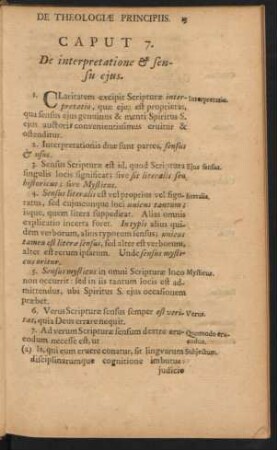 DE THEOLOGIÆ PRINCIPIIS.
CAPUT 7.
De interpretatione & sen-
su ejus.
1. CLaritatem excipit Scripturæ inter- Interpretatio.
pretatio, quæ ejus est proprietas,
qua sensus ejus genuinus & menti Spiritus S.
ejus auctoris convenientissimus eruitur &
ostenditur.
2. Interpretationis duæ sunt partes, sensus
& usus.
3. Sensus Scripturæ est id, quod Scriptura Ejus sensus.
singulis locis significat: sive sit literalis seu
historicus; sive Mysticus.
4. Sensus literalis est vel proprius vel figu- Literalis.
ratus, sed cujuscunque loci unicus tantum;
isque, quem litera suppeditat. Alias omnis
explicatio incerta foret. In typis alius qui-
dem verborum, alius typorum sensus; unicus
tamen est literæ sensus, sed alter est verborum,
alter est rerum ipsarum. Unde sensus myste-
cus oritur.
5. Sensus mysticus in omni Scripturæ loco Mysticus.
non occurrit: sed in iis tantum locis est ad-
mittendus, ubi Spiritus S. ejus occasionem
præbet.
6. Verus Scripturæ sensus semper est veri- Verus.
tas, quia Deus errare nequit.
7. Ad verum Scripturæ sensum dextre eru- Quomodo eru-
endum necesse est, ut endus.
(1) Is, qui eum eruere conatur, sit linguarum Subjectum.
disciplinarumque cognitione imbutus:
judicio